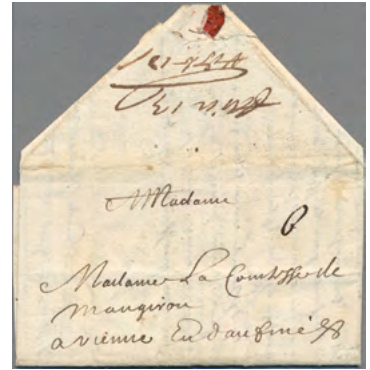 A Madame
6
Madame La Comtesse de
maugiron
a vienne En daufiné